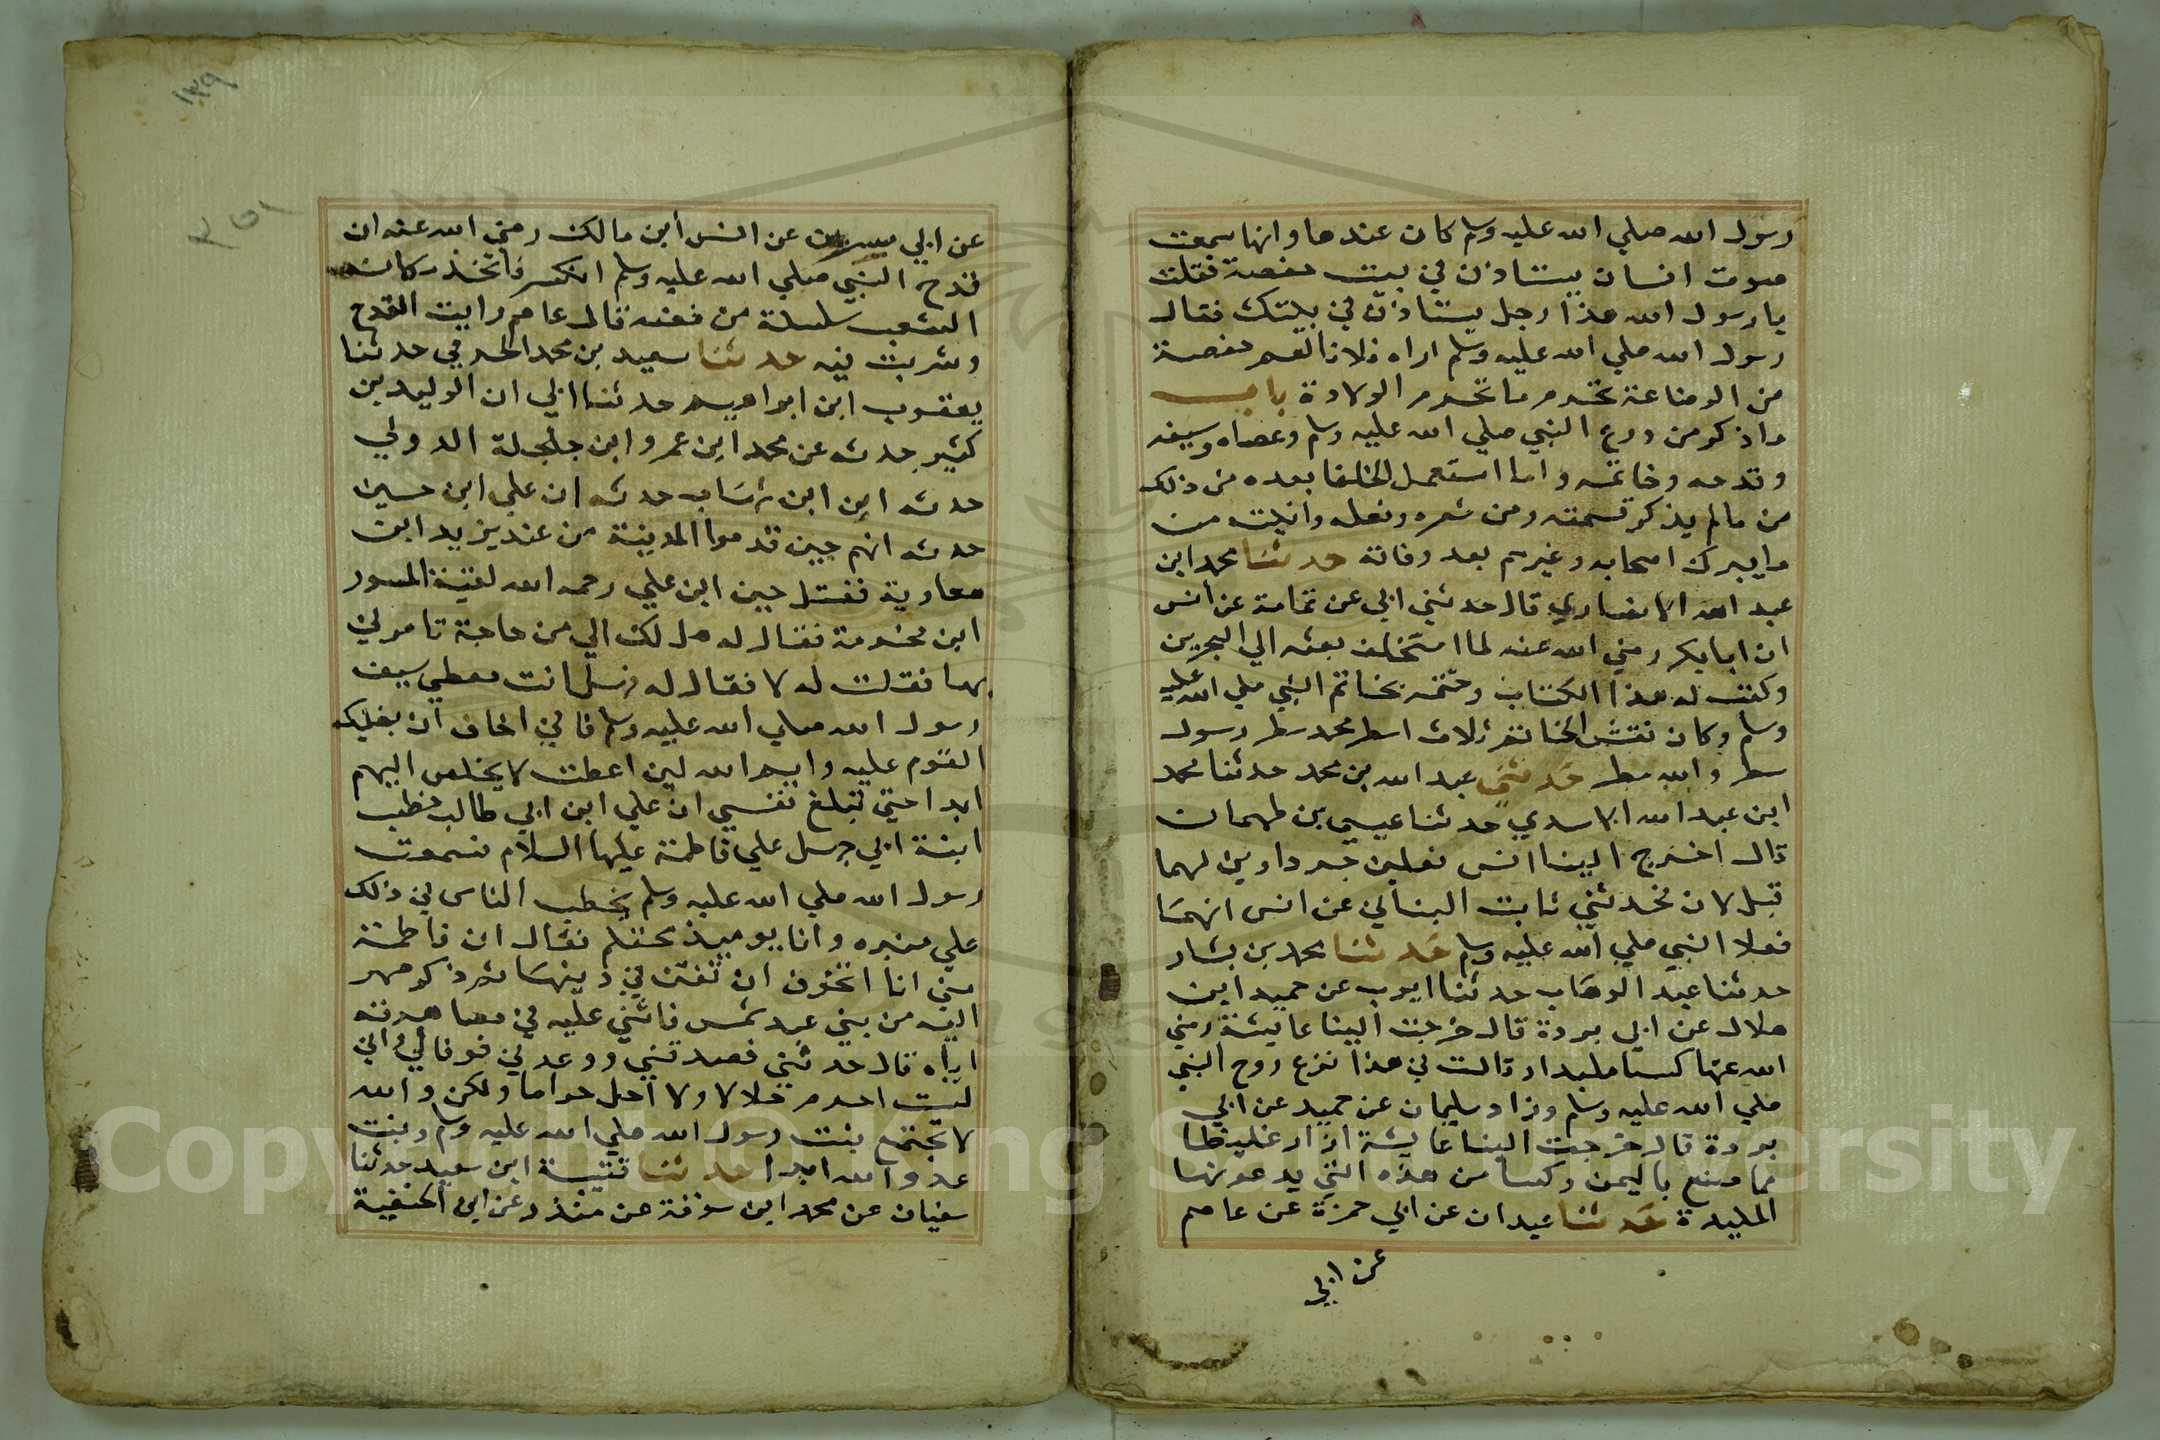 رسول الله صلي الله عليه وسلم كان عندها وانها سمعت
صوت انسان يستاذن في بيت حفصة فقلت
يا رسول الله هذا رجل يستاذن في بيتك فقال
رسول الله صلي الله عليه وسلم اراه فلانا لعم حفصة
من الرضاعة تحرم ما تحرم الولادة باب
ما ذكر من درع النبي صلي الله عليه وسلم وعصاه وسيفه
وقدحه وخاتمه و اما استعمل الخلفا بعده من ذلك
من مالم يذكر قسمته ومن شعره ونعله وانيته من
ما يبرك اصحابه وغيرهم بعد وفاته حدثنا محمد ابن
عبد الله الانصاري قال حدثني ابي عن ثمامة عن انس
ان ابابكر رضي الله عنه لما استخلف بعثه الي البحرين
وكتب له هذا الكتاب وختمه بخاتم النبي صلي الله عليه
وسلم وكان نقش الخاتم ثلاث اسطر محمد سطر رسول
سطر والله سطر حدثني عبد الله بن محمد حدثنا محمد
ابن عبد الله الاسدي حدثنا عيسي بن طهمان
قال اخرج الينا انس نعلين جرداوين لهما
قبلان فحدثني ثابت البناني عن انس انهما
نعلا النبي صلي الله عليه وسلم حدثنا محمد بن بشار
حدثنا عبد الوهاب حدثنا ايوب عن حميد ابن
هلال عن ابي بردة قال خرجت الينا عايشة رضي
الله عنها كسا ملبدا وقالت في هذا نزع روح النبي
صلي الله عليه وسلم وزاد سليمان عن حميد عن ابي
بردة قال خرجت الينا عايشة ازار غليظا
مما صنع باليمن وكسا من هذه التي يدعونها
الملبدة حدثنا عبدان عن ابي حمزة عن عاصم
عن ابي
١٣٩
عن ابي سيرين عن انس ابن مالك رضي الله عنه ان
قدح النبي صلي الله عليه وسلم انكسر فاتخذ مكان
الشعب سلسلة من فضه قال عاصم رايت القدح
وشربت فيه حدثنا سعيد بن محمد الجرمي حدثنا
يعقوب ابن ابراهيم حدثنا ابي ان الوليد بن
كثير حدثه عن محمد ابن عمرو ابن حلحلة الدولي
حدثه ابن ابن شاب حدثه ان علي ابن حسين
حدثه انهم حين قدموا المدينة من عند يزيد ابن
معاوية فقتل حين ابن علي رحمه الله لقية المسور
ابن مخرمة فقال له هل لك الي من حاجة تامرني
بها فقلت له لا فقال له فهل انت معطي سيف
رسول الله صلي الله عليه وسلم فاني اخاف ان يغلبك
القوم عليه وايم الله لين اعطت لا يخلص اليهم
ابدا حتي تبلغ نفسي ان علي ابن ابي طالب خطب
ابنة ابي جهل علي فاطمة عليها السلام فسمعت
رسول الله صلي الله عليه وسلم يخطب الناس في ذلك
علي منبره وانا يوميذ محتلم فقال ان فاطمة
مني انا اتخوف ان تفتن في دينها ثم ذكر صهر
اليه من بني عبد شمس فاثني عليه في مصاهرته
اياه قال حدثني فصدقني ووعدني فوفالي واني
لست احرم حلالا ولا احل حراما ولكن والله
لا تجتمع بنت رسول الله صلي الله عليه وسلم وبنت
عدو الله ابدا حدثنا قتيبة ابن سعيد حدثنا
سفيان عن محمد ابن سوقة عن منذر عن ابن الحنفية